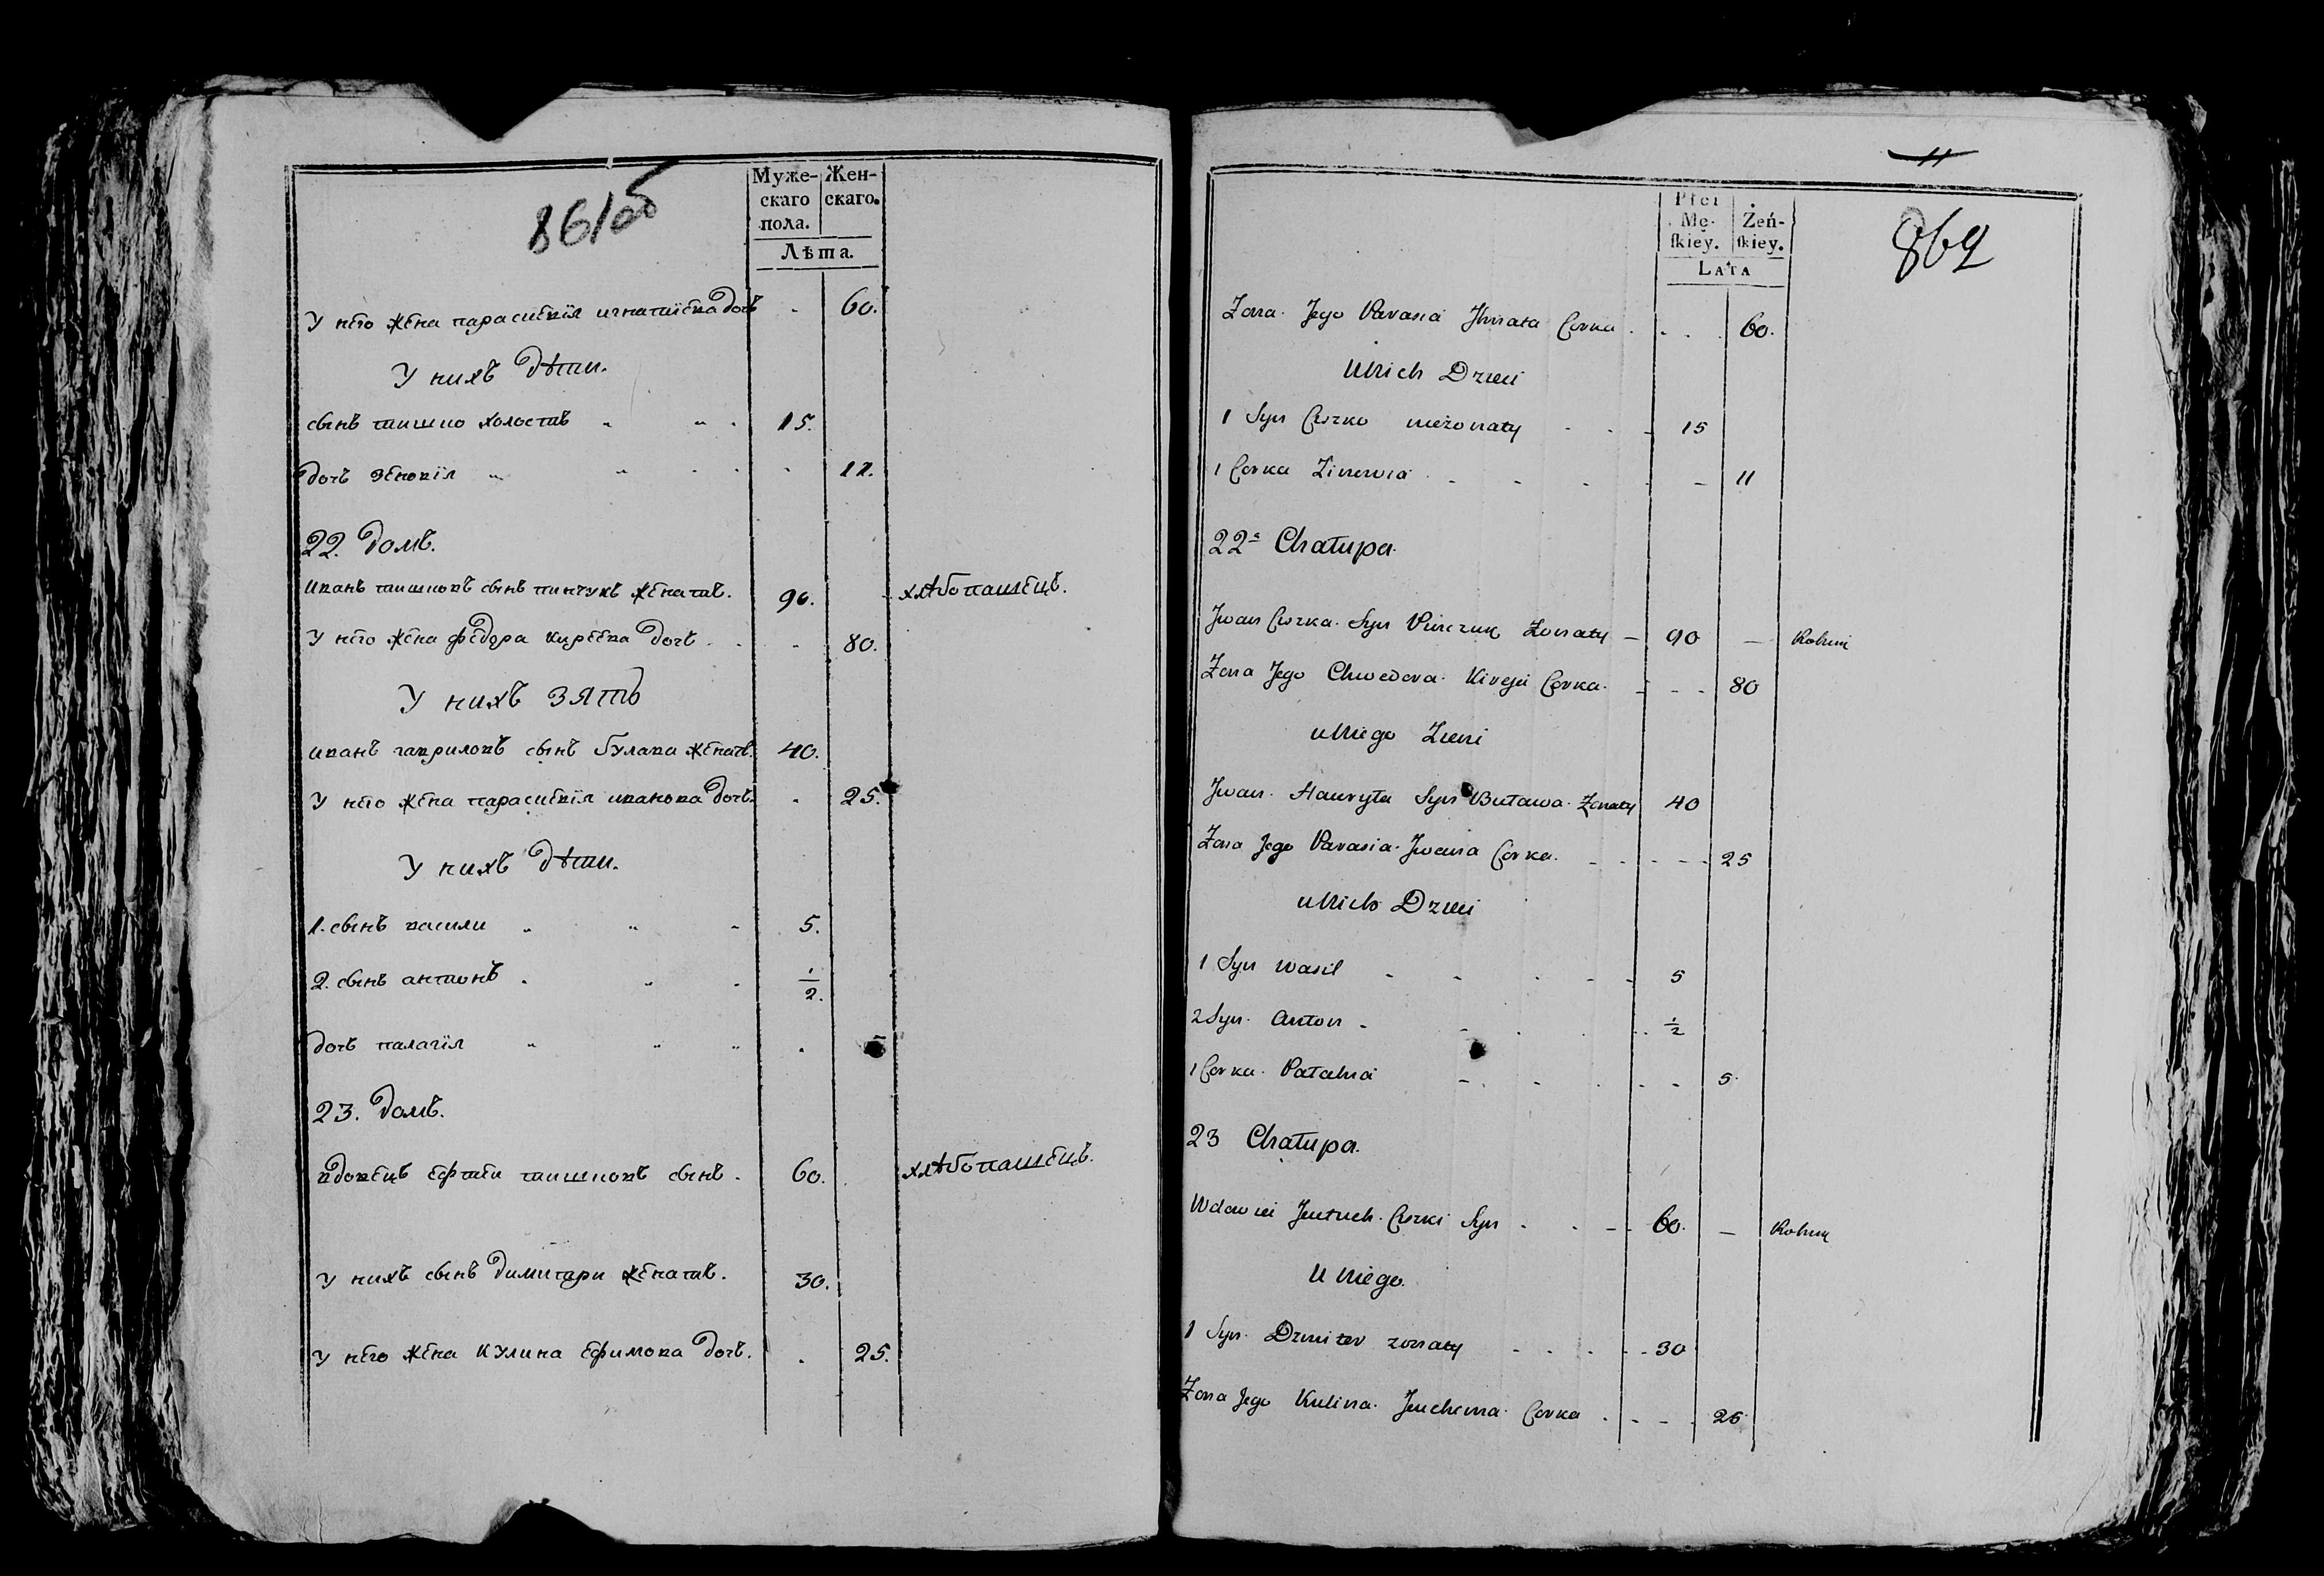 861об
Муже-
скаго
пола.
Жен-
скаго.
Лѣта.
У него жена парасиевія игнатиева дочь - 60.
У нихъ дѣти.
сынъ тишко холостъ 15.
дочь зеновія 11.
22. домъ.
иванъ тишковъ сынъ пинчукъ женатъ. 90. хлѣбопашецъ.
У него жена федора киреева дочь 80.
У нихъ зять
иванъ гавриловъ сынъ булава женатъ. 40.
У него жена парасиевія иванова дочь. 25.
У нихъ дѣти.
1. сынъ васили 5.
2. сынъ антонъ 1/2.
дочь палагія 5
23. домъ.
вдовецъ ефтеи тишковъ сынъ. 60. хлѣбопашецъ.
У нихъ сынъ димитри женатъ. 30.
У него жена кулина ефимова дочь. 25.
11
862
Płci
Mę-
skiey.
Żeń-
skiey.
LATA
Zona Jego Parasia Jhnata Corka 60.
U Nich Dzieci
1 Syn Ciszko nieżonaty 15
1 Corka Zinowia 11
22a Chałupa
Jwan Ciszka Syn Pinczuk Zonaty 90 Rolnik
Zona Jego Chwedora Kireja Corka 80
u Niego Zienć
Jwan Hauryła Syn Buława Zonaty 40
Zona Jego Parasia Jwana Corka 25
u Nich Dzieci
1 Syn Wasil 5
2 Syn Anton 1/2
1 Corka Pałahia 5
23 Chałupa
Wdowiec Ciszki Syn 60. Rolnik
U Niego.
1 Syn Dzmiter zonaty 30
Zona Jego Kulina Juchima Corka 25